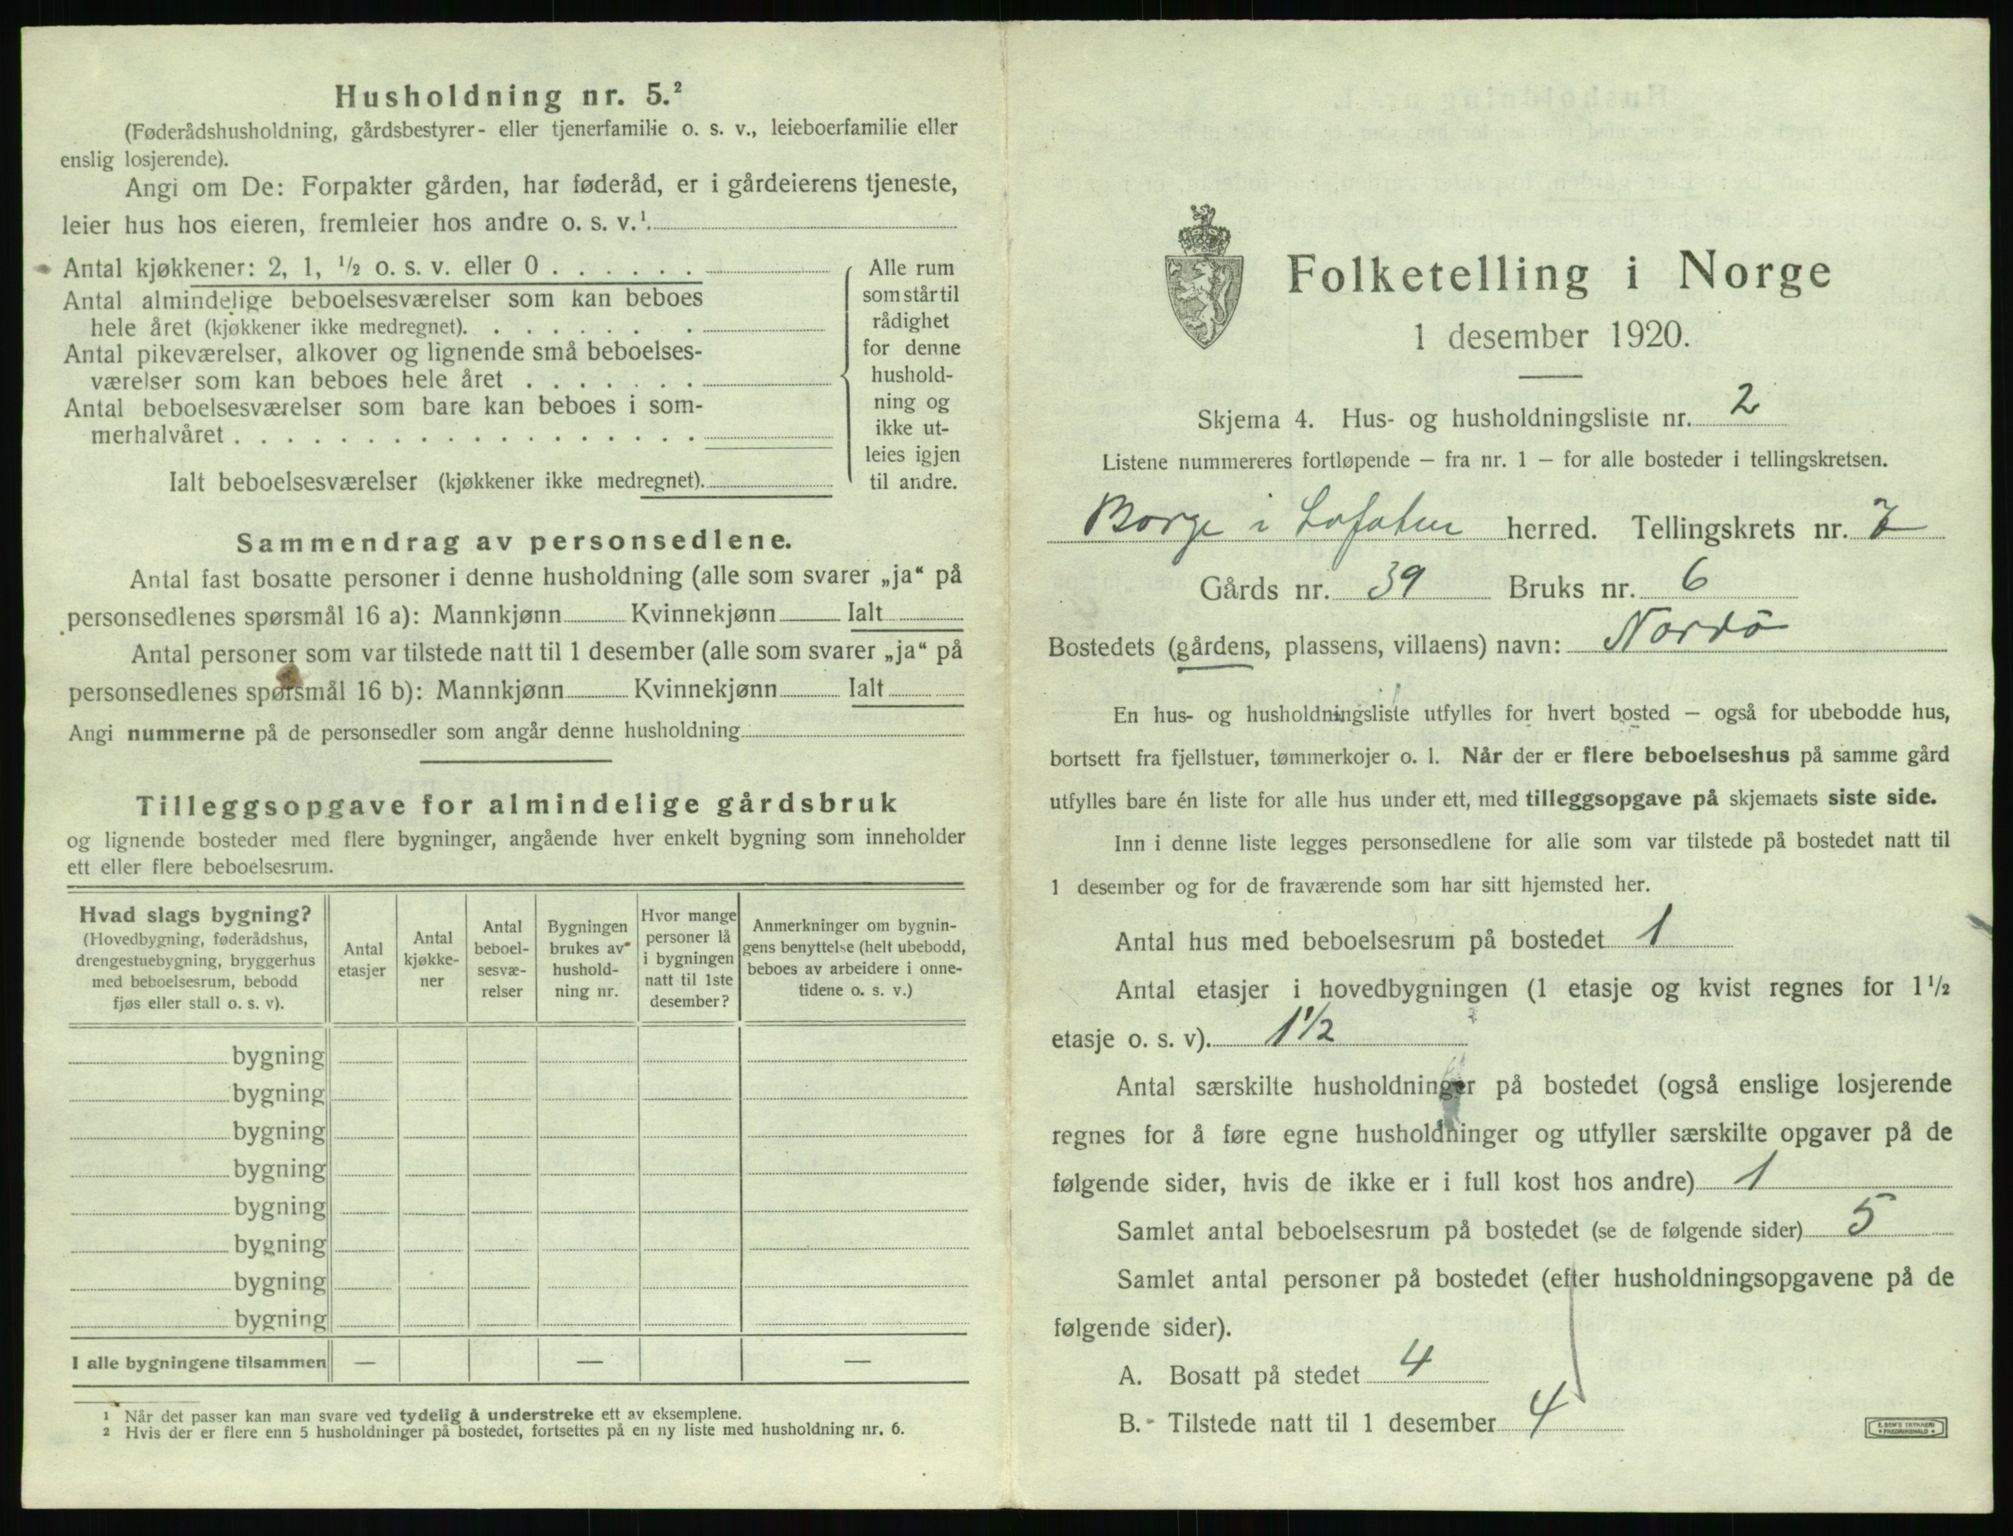 Husholdning nr. 5.²
(Føderådshusholdning, gårdsbestyrer- eller tjenerfamilie o. s. v., leieboerfamilie eller
enslig losjerende).
Angi om De: Forpakter gården, har føderåd, er i gårdeierens tjeneste,
leier hus hos eieren, fremleier hos andre o. s. v.¹
Antal kjøkkener: 2, 1, ½ o. s. v. eller 0 . . . . . .
Antal almindelige beboelsesværelser som kan beboes
hele året (kjøkkener ikke medregnet). . . . . . . .
Antal pikeværelser, alkover og lignende små beboelses-
værelser som kan beboes hele året . . . . . . .
Antal beboelsesværelser som bare kan beboes i som-
merhalvåret . . . . . . . . . . . . . . . . . .
Ialt beboelsesværelser (kjøkkener ikke medregnet).
Alle rum
som står til
rådighet
for denne
hushold-
ning og
ikke ut-
leies igjen
til andre.
Sammendrag av personsedlene.
Antal fast bosatte personer i denne husholdning (alle som svarer „ja“ på
personsedlenes spørsmål 16 a): Mannkjønn Kvinnekjønn Ialt
Antal personer som var tilstede natt til 1 desember (alle som svarer „ja“ på
personsedlenes spørsmål 16 b): Mannkjønn Kvinnekjønn Ialt
Angi nummerne på de personsedler som angår denne husholdning
Tilleggsopgave for almindelige gårdsbruk
og lignende bosteder med flere bygninger, angående hver enkelt bygning som inneholder
ett eller flere beboelsesrum.
Hvad slags bygning?
(Hovedbygning, føderådshus,
drengestuebygning, bryggerhus
med beboelsesrum, bebodd
fjøs eller stall o. s. v).
Antal
etasjer
Antal
kjøkke-
ner
Antal
beboel-
sesvæ-
relser
Bygningen
brukes av
hushold-
ning nr.
Hvor mange
personer lå
i bygningen
natt til 1ste
desember?
Anmerkninger om bygnin-
gens benyttelse (helt ubebodd,
beboes av arbeidere i onne-
tidene o. s. v.)
bygning
bygning
bygning
bygning
bygning
bygning
bygning
bygning
I alle bygningene tilsammen — — —
¹ Når det passer kan man svare ved tydelig å understreke ett av eksemplene.
² Hvis der er flere enn 5 husholdninger på bostedet, fortsettes på en ny liste med husholdning nr. 6.
Folketelling i Norge
1 desember 1920.
Skjema 4. Hus- og husholdningsliste nr. 2
Listene nummereres fortløpende – fra nr. 1 – for alle bosteder i tellingskretsen.
Borge i Lofoten herred. Tellingskrets nr. 7
Gårds nr. 39 Bruks nr. 6
Bostedets (gårdens, plassens, villaens) navn: Nordö
En hus- og husholdningsliste utfylles for hvert bosted – også for ubebodde hus,
bortsett fra fjellstuer, tømmerkojer o. l. Når der er flere beboelseshus på samme gård
utfylles bare én liste for alle hus under ett, med tilleggsopgave på skjemaets siste side.
Inn i denne liste legges personsedlene for alle som var tilstede på bostedet natt til
1 desember og for de fraværende som har sitt hjemsted her.
Antal hus med beboelsesrum på bostedet 1
Antal etasjer i hovedbygningen (1 etasje og kvist regnes for 1½
etasje o. s. v). 1½
Antal særskilte husholdninger på bostedet (også enslige losjerende
regnes for å føre egne husholdninger og utfyller særskilte opgaver på de
følgende sider, hvis de ikke er i full kost hos andre) 1
Samlet antal beboelsesrum på bostedet (se de følgende sider) 5
Samlet antal personer på bostedet (efter husholdningsopgavene på de
følgende sider).
A. Bosatt på stedet 4
B. Tilstede natt til 1 desember 4